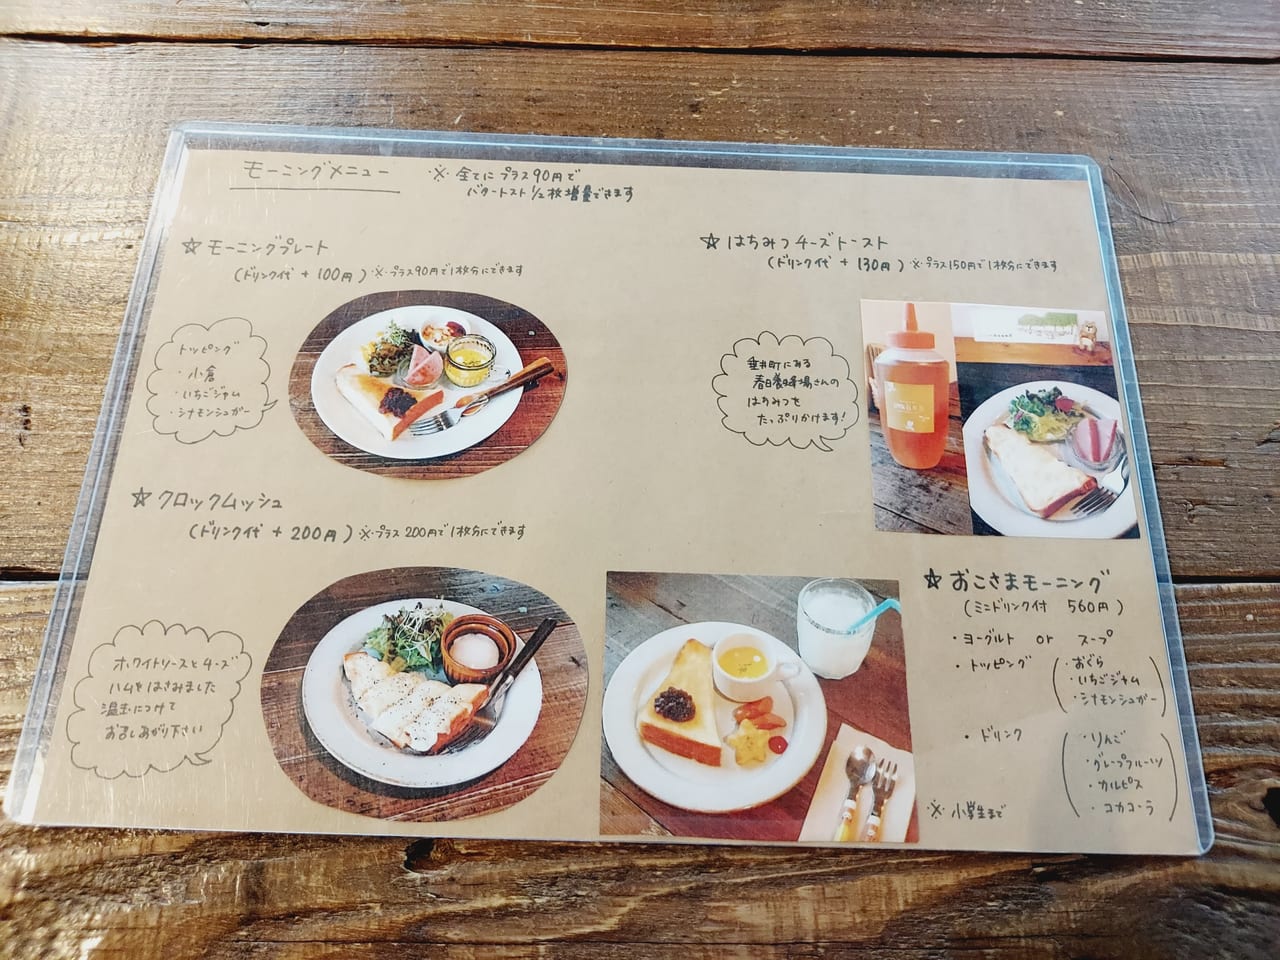 モーニングメニュー
※ 全てにプラス90円で
バタートスト1/2枚増量できます
☆ モーニングプレート
(ドリンク代 + 100円) ※プラス90円で1枚分にできます
トッピング
・小倉
・いちごジャム
・シナモンシュガー
☆ はちみつチーズトースト
(ドリンク代 + 130円) ※プラス150円で1枚分にできます
垂井町にある
春日養蜂場さんの
はちみつを
たっぷりかけます!
☆ クロックムッシュ
(ドリンク代 + 200円) ※プラス200円で1枚分にできます
ホワイトソースとチーズ
ハムをはさみました
温玉につけて
おめしあがり下さい
☆ おこさまモーニング
(ミニドリンク付 560円)
・ヨーグルト or スープ
・トッピング
・おぐら
・いちごジャム
・シナモンシュガー
・ドリンク
・りんご
・グレープフルーツ
・カルピス
・コカコーラ
※ 小学生まで